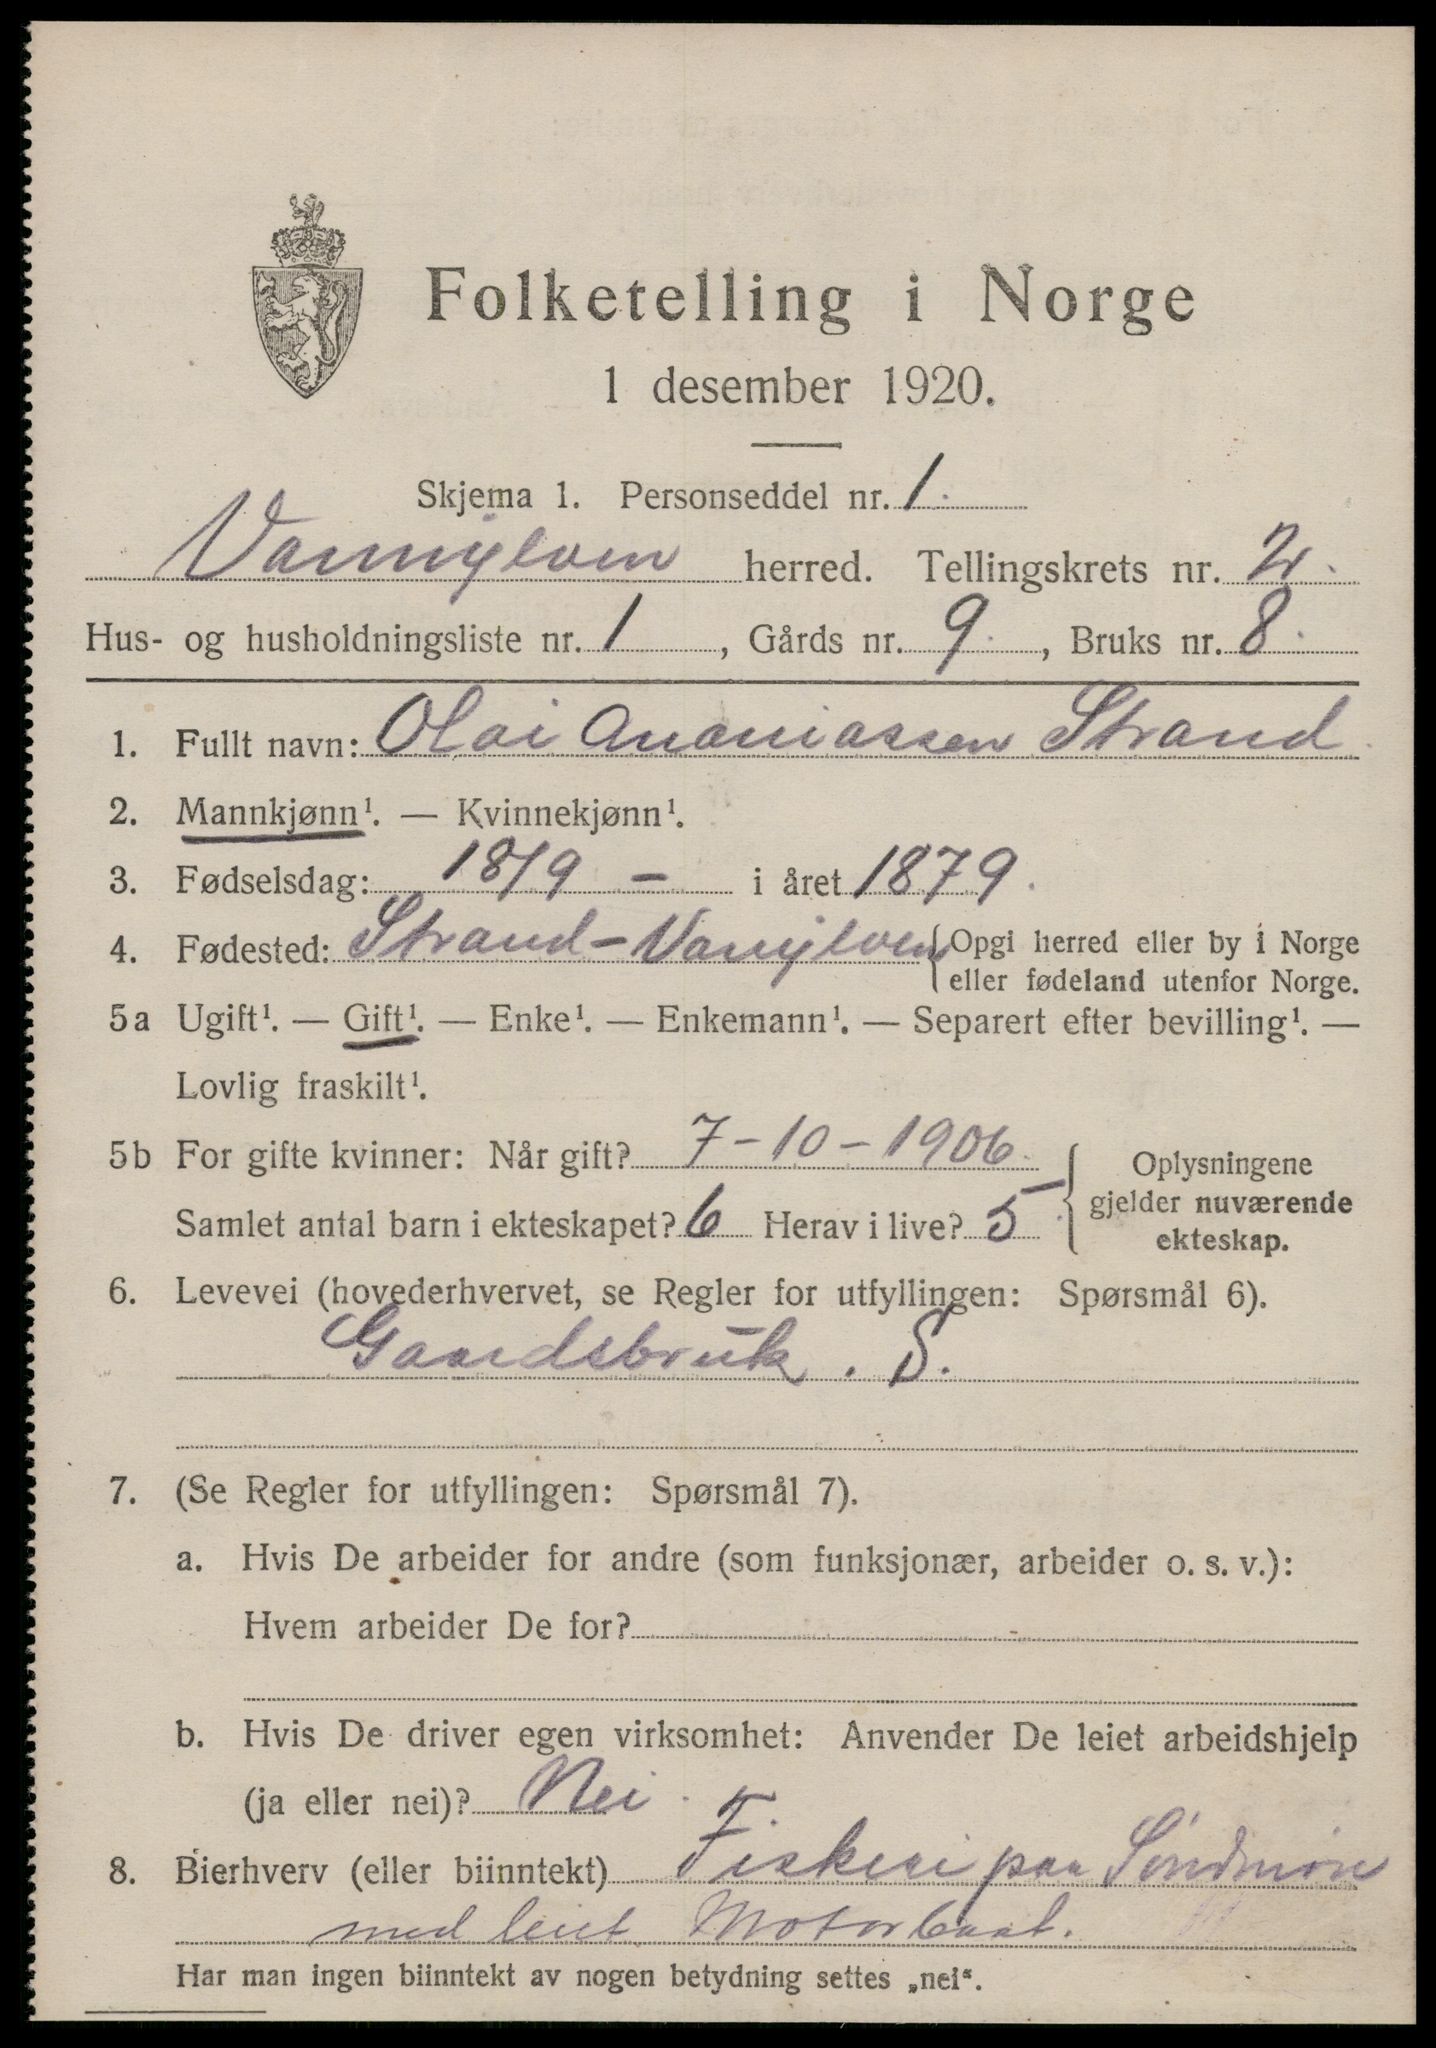 Folketelling i Norge
1 desember 1920.
Skjema 1. Personseddel nr. 1.
Vannylven herred. Tellingskrets nr. 2.
Hus- og husholdningsliste nr. 1, Gårds nr. 9., Bruks nr. 8.
1. Fullt navn: Olai Ananiassen Strand.
2. Mannkjønn¹. — Kvinnekjønn¹.
3. Fødselsdag: 18/9 – i året 1879.
4. Fødested: Strand – Vanylven {Opgi herred eller by i Norge
eller fødeland utenfor Norge.
5a Ugift¹. — Gift¹. — Enke¹. — Enkemann¹. — Separert efter bevilling¹. —
Lovlig fraskilt¹.
5b For gifte kvinner: Når gift? 7 – 10 – 1906.
Samlet antal barn i ekteskapet? 6 Herav i live? 5
{Oplysningene
gjelder nuværende
ekteskap.
6. Levevei (hovederhvervet, se Regler for utfyllingen: Spørsmål 6).
Gaardsbruk. S.
7. (Se Regler for utfyllingen: Spørsmål 7).
a. Hvis De arbeider for andre (som funksjonær, arbeider o. s. v.):
Hvem arbeider De for?
b. Hvis De driver egen virksomhet: Anvender De leiet arbeidshjelp
(ja eller nei)? Nei.
8. Bierhverv (eller biinntekt) Fiskeri paa Söndmöre
med leiet Motorbaat.
Har man ingen biinntekt av nogen betydning settes „nei“.